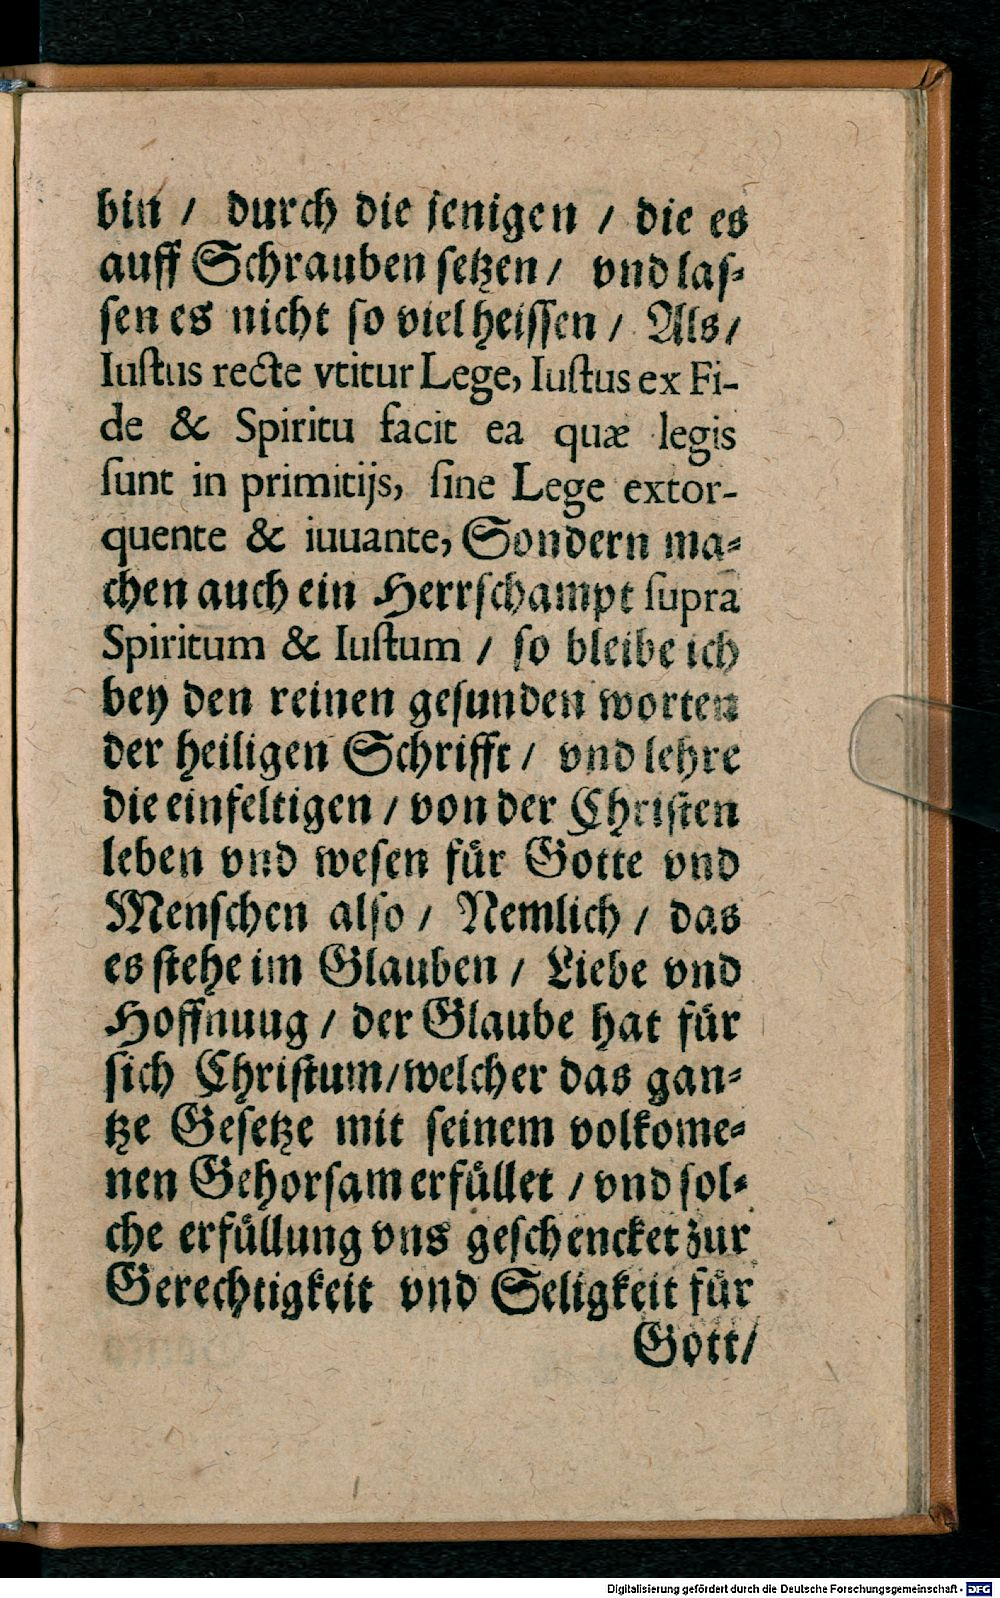 bin / durch die jenigen / die es
auff Schrauben setzen / vnd las-
sen es nicht so viel heissen / Als /
Iustus recte vtitur Lege, Iustus ex Fi-
de & Spiritu facit ea quæ legis
sunt in primitijs, sine Lege extor-
quente & iuuante, Sondern ma-
chen auch ein Herrschampt supra
Spiritum & Iustum / so bleibe ich
bey den reinen gesunden worten
der heiligen Schrifft / vnd lehre
die einfeltigen / von der Christen
leben vnd wesen für Gotte vnd
Menschen also / Nemlich / das
es stehe im Glauben / Liebe vnd
Hoffnuug / der Glaube hat für
sich Christum / welcher das gan-
tze Gesetze mit seinem volkome-
nen Gehorsam erfüllet / vnd sol-
che erfüllung vns geschencket zur
Gerechtigkeit vnd Seligkeit für
Gott /
Digitalisierung gefördert durch die Deutsche Forschungsgemeinschaft - DFG